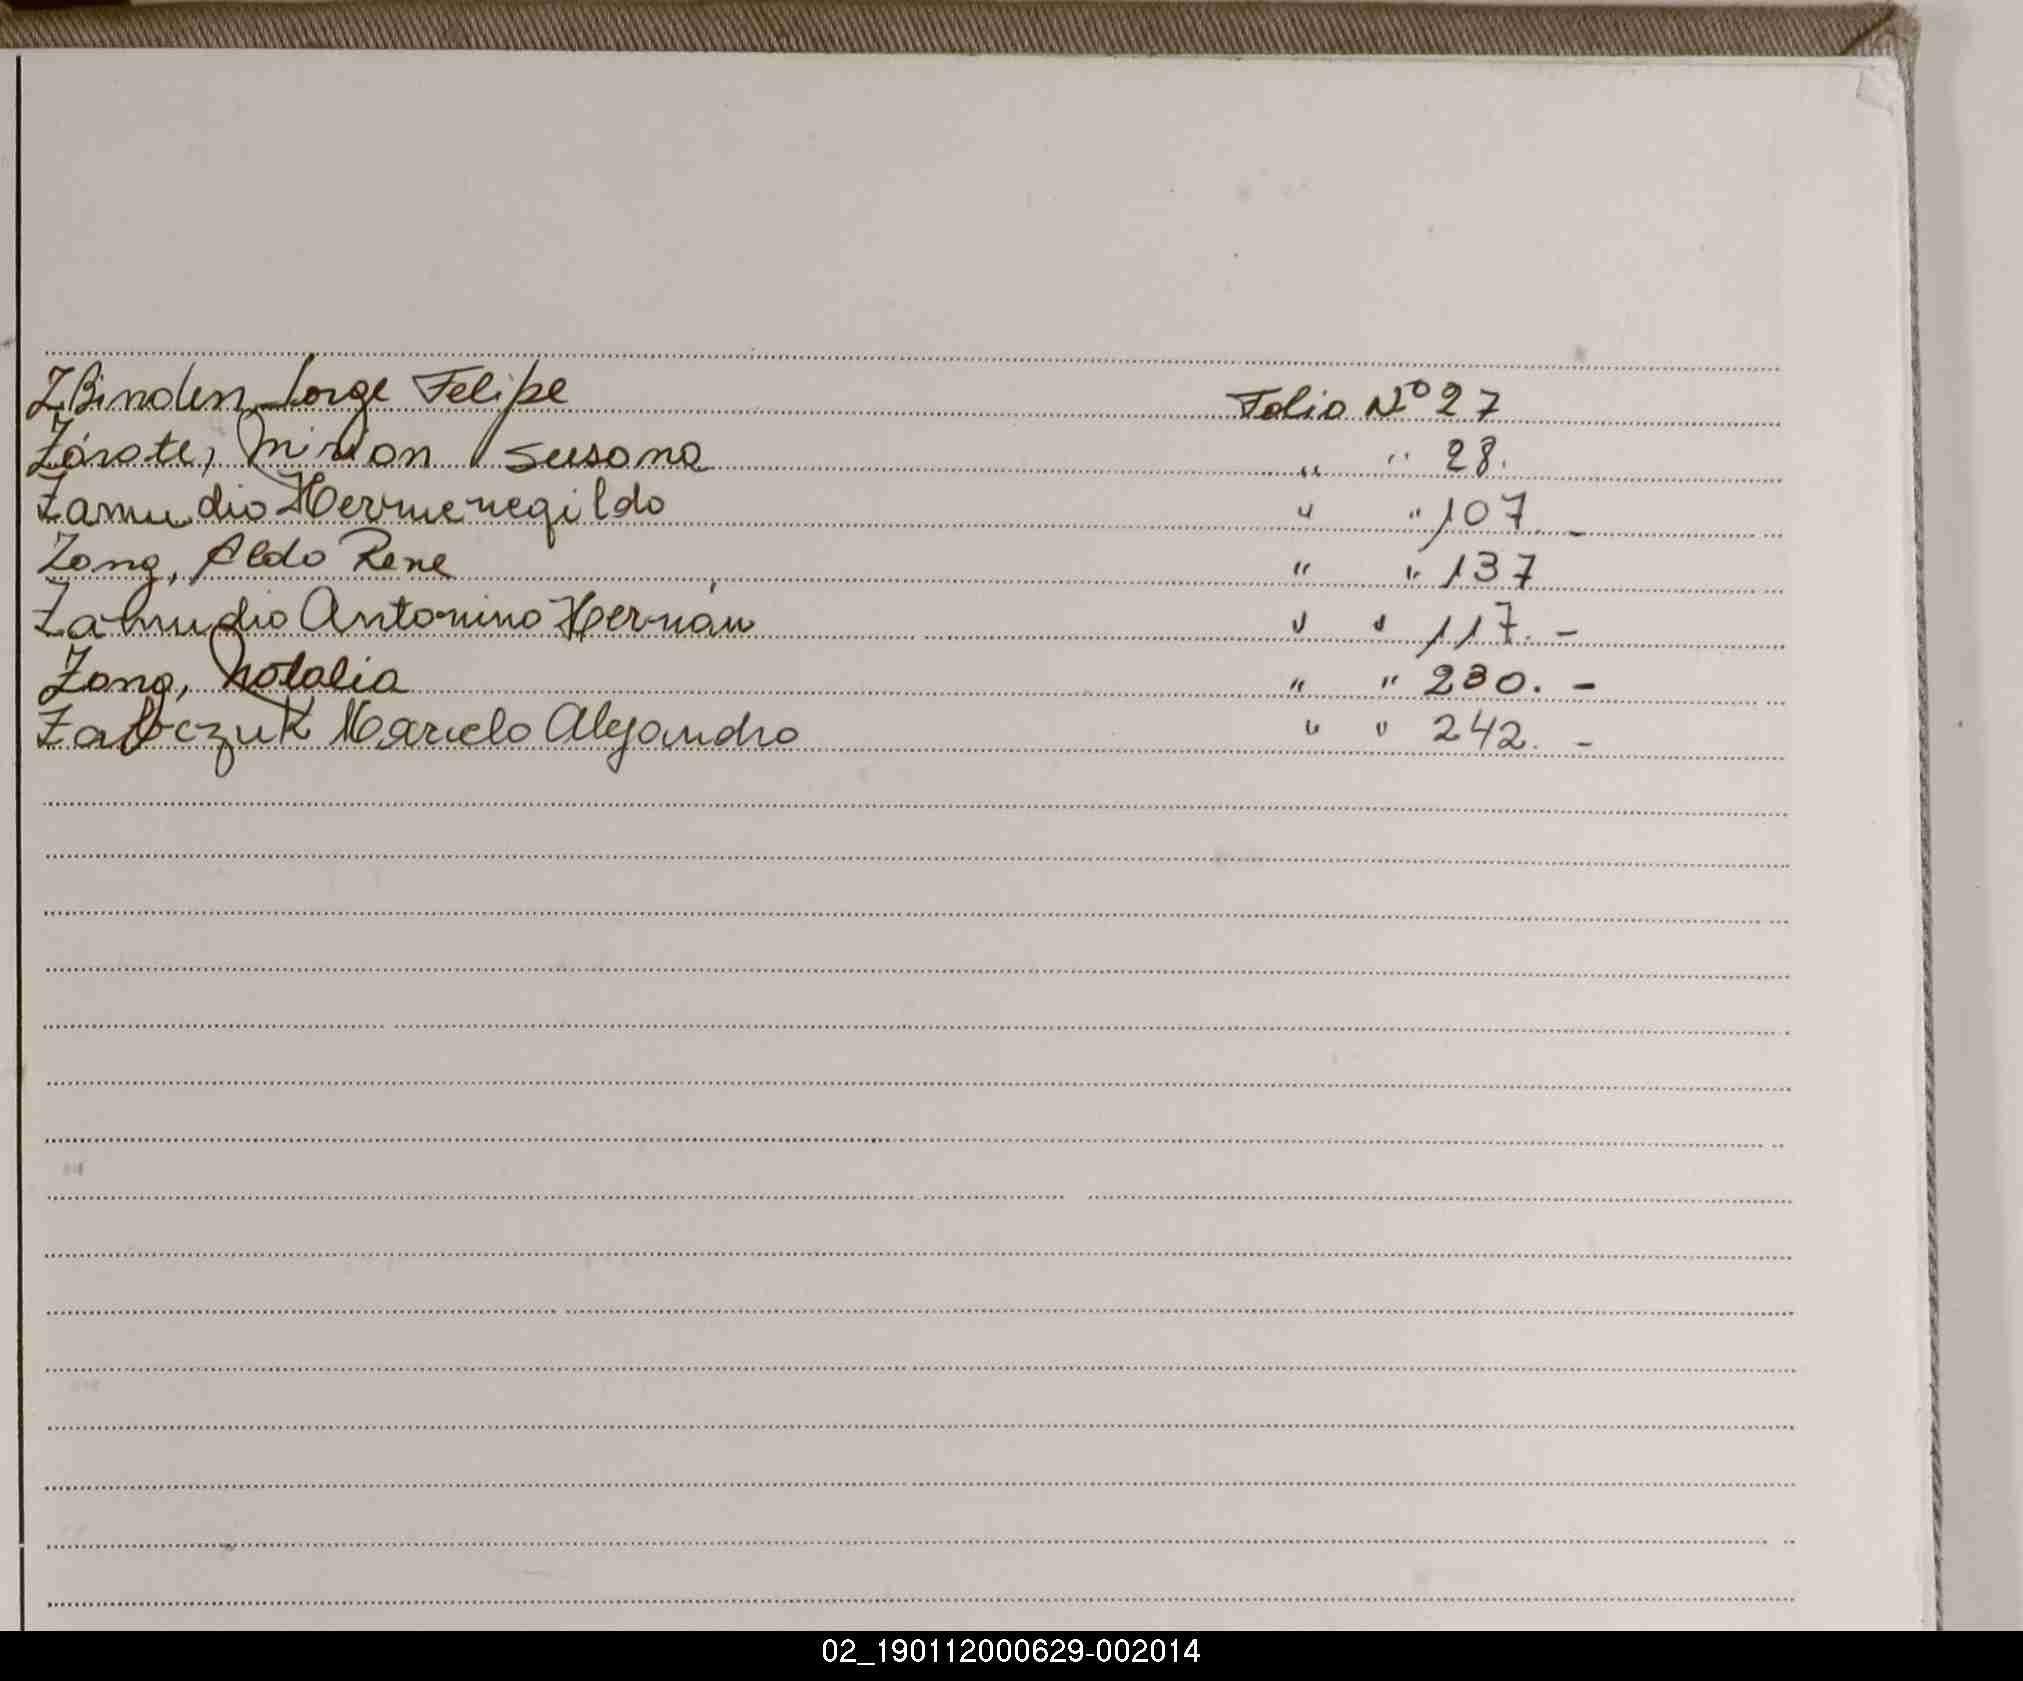 ZBinden Jorge Felipe Folio Nº 27
Zárate, Mirian Susana " " 28.
Zamudio Hermenegildo " " 107. -
Zang, Aldo Rene " " 137
Zamudio Antonino Hernán " " 117. -
Zang, Natalia " " 230. -
Zabczuk Marcelo Alejandro " " 242. -
02_190112000629-002014